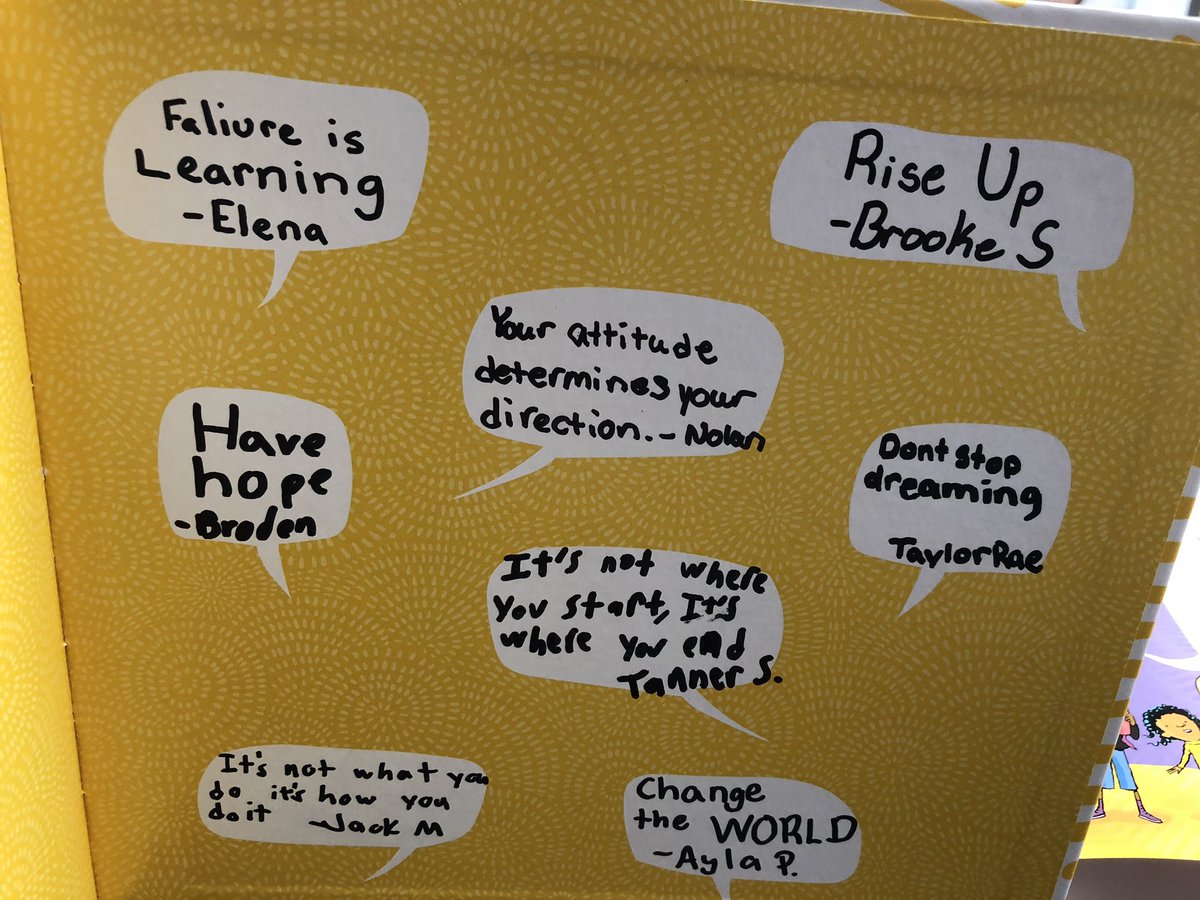 Faliure is
Learning
-Elena
Rise Up
-Brooke S
Your attitude
determines your
direction. - Nolan
Have
hope
-Broden
Dont stop
dreaming
Taylor Rae
It's not where
you start, It's
where you end
Tanner S.
It's not what you
do it's how you
do it -Jack M
Change
the WORLD
-Ayla P.